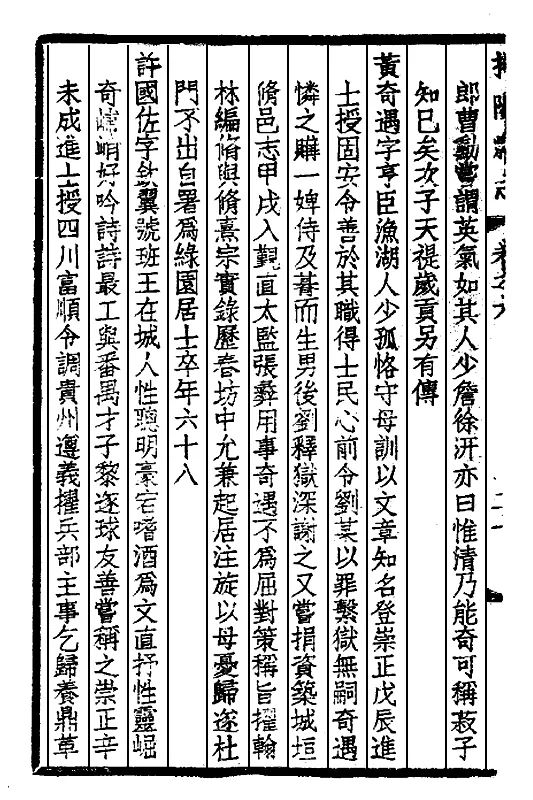 揭陽縣志 卷之六
郎曹勳嘗謂英氣如其人少詹徐汧亦曰惟清乃能奇可稱菽子
知巳矣次子天禔歲貢另有傳
黃奇遇字亨臣漁湖人少孤恪守母訓以文章知名登崇正戊辰進
士授固安令善於其職得士民心前令劉某以罪繫獄無嗣奇遇
憐之購一婢侍及朞而生男後劉釋獄深謝之又嘗捐資築城垣
脩邑志甲戌入覲直太監張彝用事奇遇不為屈對策稱旨擢翰
林編脩與脩熹宗實錄歷春坊中允兼起居注旋以母憂歸遂杜
門不出自署為綠園居士卒年六十八
許國佐字欽翼號班王在城人性聰明豪宕嗜酒為文直抒性靈崛
奇峭好吟詩詩最工與番禺才子黎遂球友善嘗稱之崇正辛
未成進士授四川富順令調貴州遵義擢兵部主事乞歸養鼎革